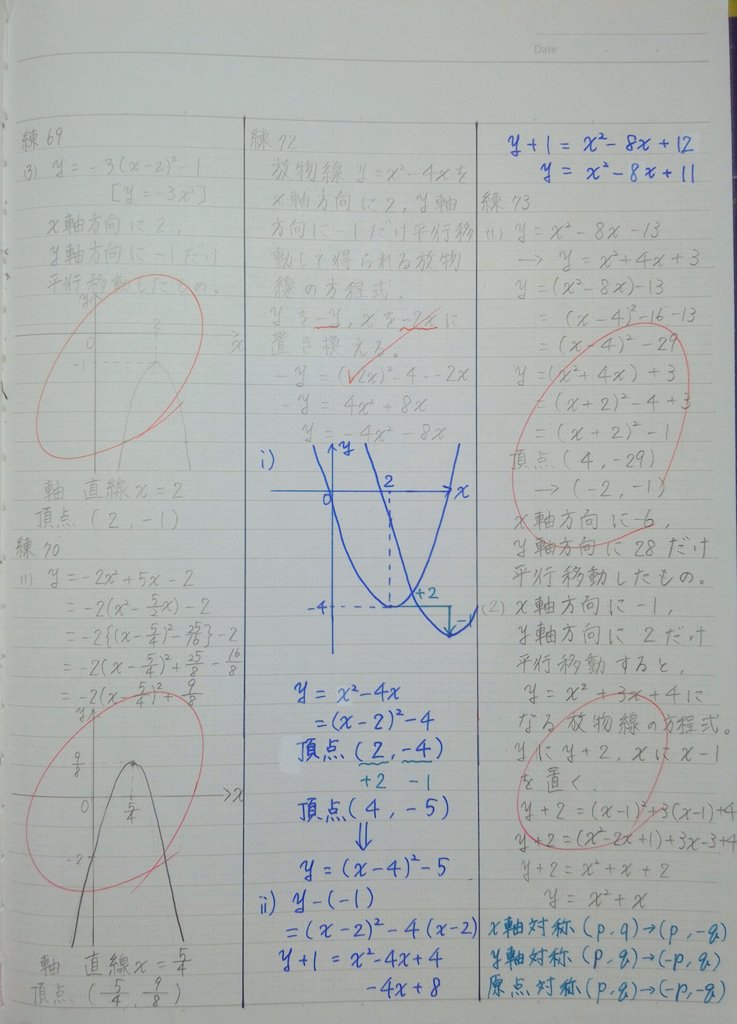 Date
練 69
(3) y = -3(x-2)²-1
[y = -3x²]
x軸方向に 2,
y軸方向に -1 だけ
平行移動したもの。
y
2
0
x
-1
軸 直線 x = 2
頂点 (2, -1)
練 70
(1) y = -2x² + 5x - 2
= -2(x² - 5/2x) - 2
= -2{(x - 5/4)² - 25/16} - 2
= -2(x - 5/4)² + 25/8 - 16/8
= -2(x - 5/4)² + 9/8
y
9/8
0
5/4
x
-2
軸 直線 x = 5/4
頂点 (5/4, 9/8)
練 72
放物線 y = x² - 4x を
x軸方向に 2, y軸
方向に -1 だけ平行移
動して得られる放物
線の方程式.
y を -y, x を -2x に
置き換える。
-y = (-2x)² - 4 - -2x
-y = 4x² + 8x
y = -4x² - 8x
i)
y
2
0
x
-4
+2
-1
y = x² - 4x
= (x-2)² - 4
頂点 (2, -4)
+2 -1
頂点 (4, -5)
⇓
y = (x-4)² - 5
ii) y-(-1)
= (x-2)² - 4(x-2)
y+1 = x² - 4x + 4
-4x + 8
y+1 = x² - 8x + 12
y = x² - 8x + 11
練 73
(1) y = x² - 8x - 13
→ y = x² + 4x + 3
y = (x² - 8x) - 13
= (x-4)² - 16 - 13
= (x-4)² - 29
y = (x² + 4x) + 3
= (x+2)² - 4 + 3
= (x+2)² - 1
頂点 (4, -29)
→ (-2, -1)
x軸方向に -6,
y軸方向に 28 だけ
平行移動したもの。
(2) x軸方向に -1,
y軸方向に 2 だけ
平行移動すると,
y = x² + 3x + 4 に
なる放物線の方程式。
y に y+2, x に x-1
を置く.
y+2 = (x-1)² + 3(x-1) + 4
y+2 = (x² - 2x + 1) + 3x - 3 + 4
y+2 = x² + x + 2
y = x² + x
x軸対称 (p, q) → (p, -q)
y軸対称 (p, q) → (-p, q)
原点対称 (p, q) → (-p, -q)